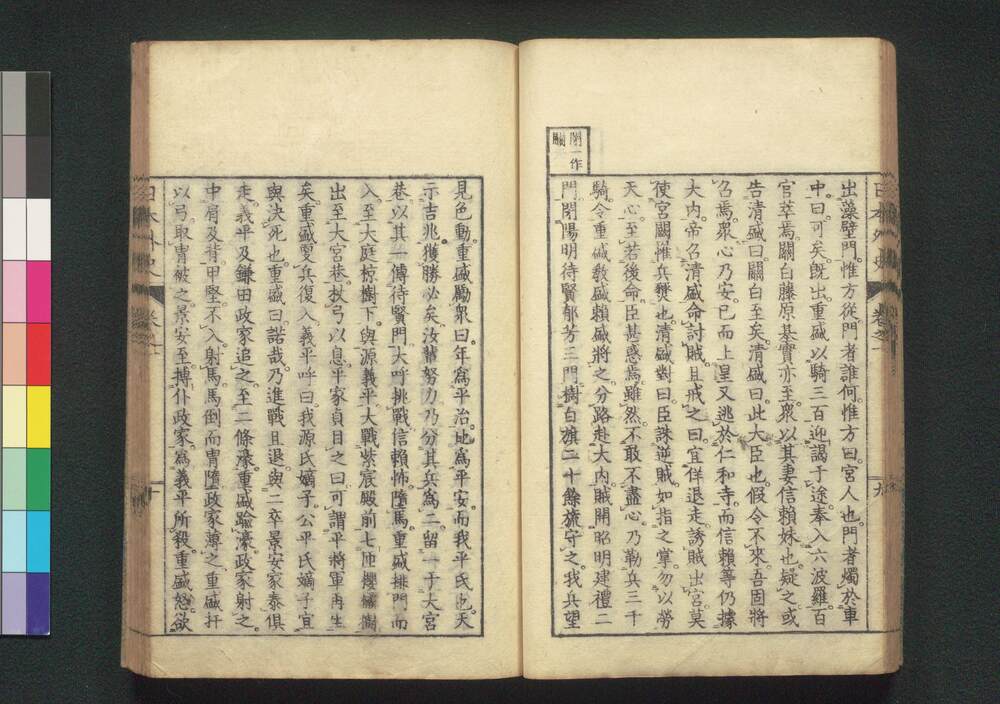 出藻壁門。惟方從門者誰何。惟方曰。宮人也。門者燭於車
中。曰。可矣。既出。重盛以騎三百迎謁于途。奉入六波羅。百
官萃焉。關白藤原基實亦至。衆以其妻信賴妹也。疑之。或
告清盛曰。關白至矣。清盛曰。此大臣也。假令不來。吾固將
召焉。衆心乃安。已而上皇又逃於仁和寺。而信賴等仍據
大内。帝召清盛。命討賊。且戒之曰。宜佯退走。誘賊出宮。莫
使宮闕惟兵燹也。清盛對曰。臣誅逆賊。如指之掌。勿以勞
天心。至若後命。臣甚惑焉。雖然。不敢不盡心。乃勒兵三千
騎。令重盛教盛賴盛將之。分路赴大内。賊開昭明建禮二
門。閉陽明待賢郁芳三門。樹白旗二十餘旒守之。我兵望
閉一作
日本外史 卷之一 九
見色動。重盛勵衆曰。年爲平治。地爲平安。而我平氏也。天
示吉兆。獲勝必矣。汝輩努力。乃分其兵爲二。留一于大宮
巷。以其一傳待賢門。大呼挑戰。信賴怖墮馬。重盛排門而
入。至大庭椋樹下。與源義平大戰紫宸殿前。七匝櫻橘樹。
出至大宮巷。杖弓以息。平家貞目之曰。可謂平將軍再生
矣。重盛更兵復入。義平呼曰。我源氏嫡子。公平氏嫡子。宜
與決死也。重盛曰。諾哉。乃進戰且退。與二卒景安家泰俱
走。義平及鎌田政家追之。至二條濠。重盛踰濠。政家射之。
中肩及背。甲堅不入。射馬。馬倒而冑墮。政家薄之。重盛扞
以弓。取冑被之。景安至。搏仆政家。爲義平所殺。重盛怒欲
日本外史 卷之一 十